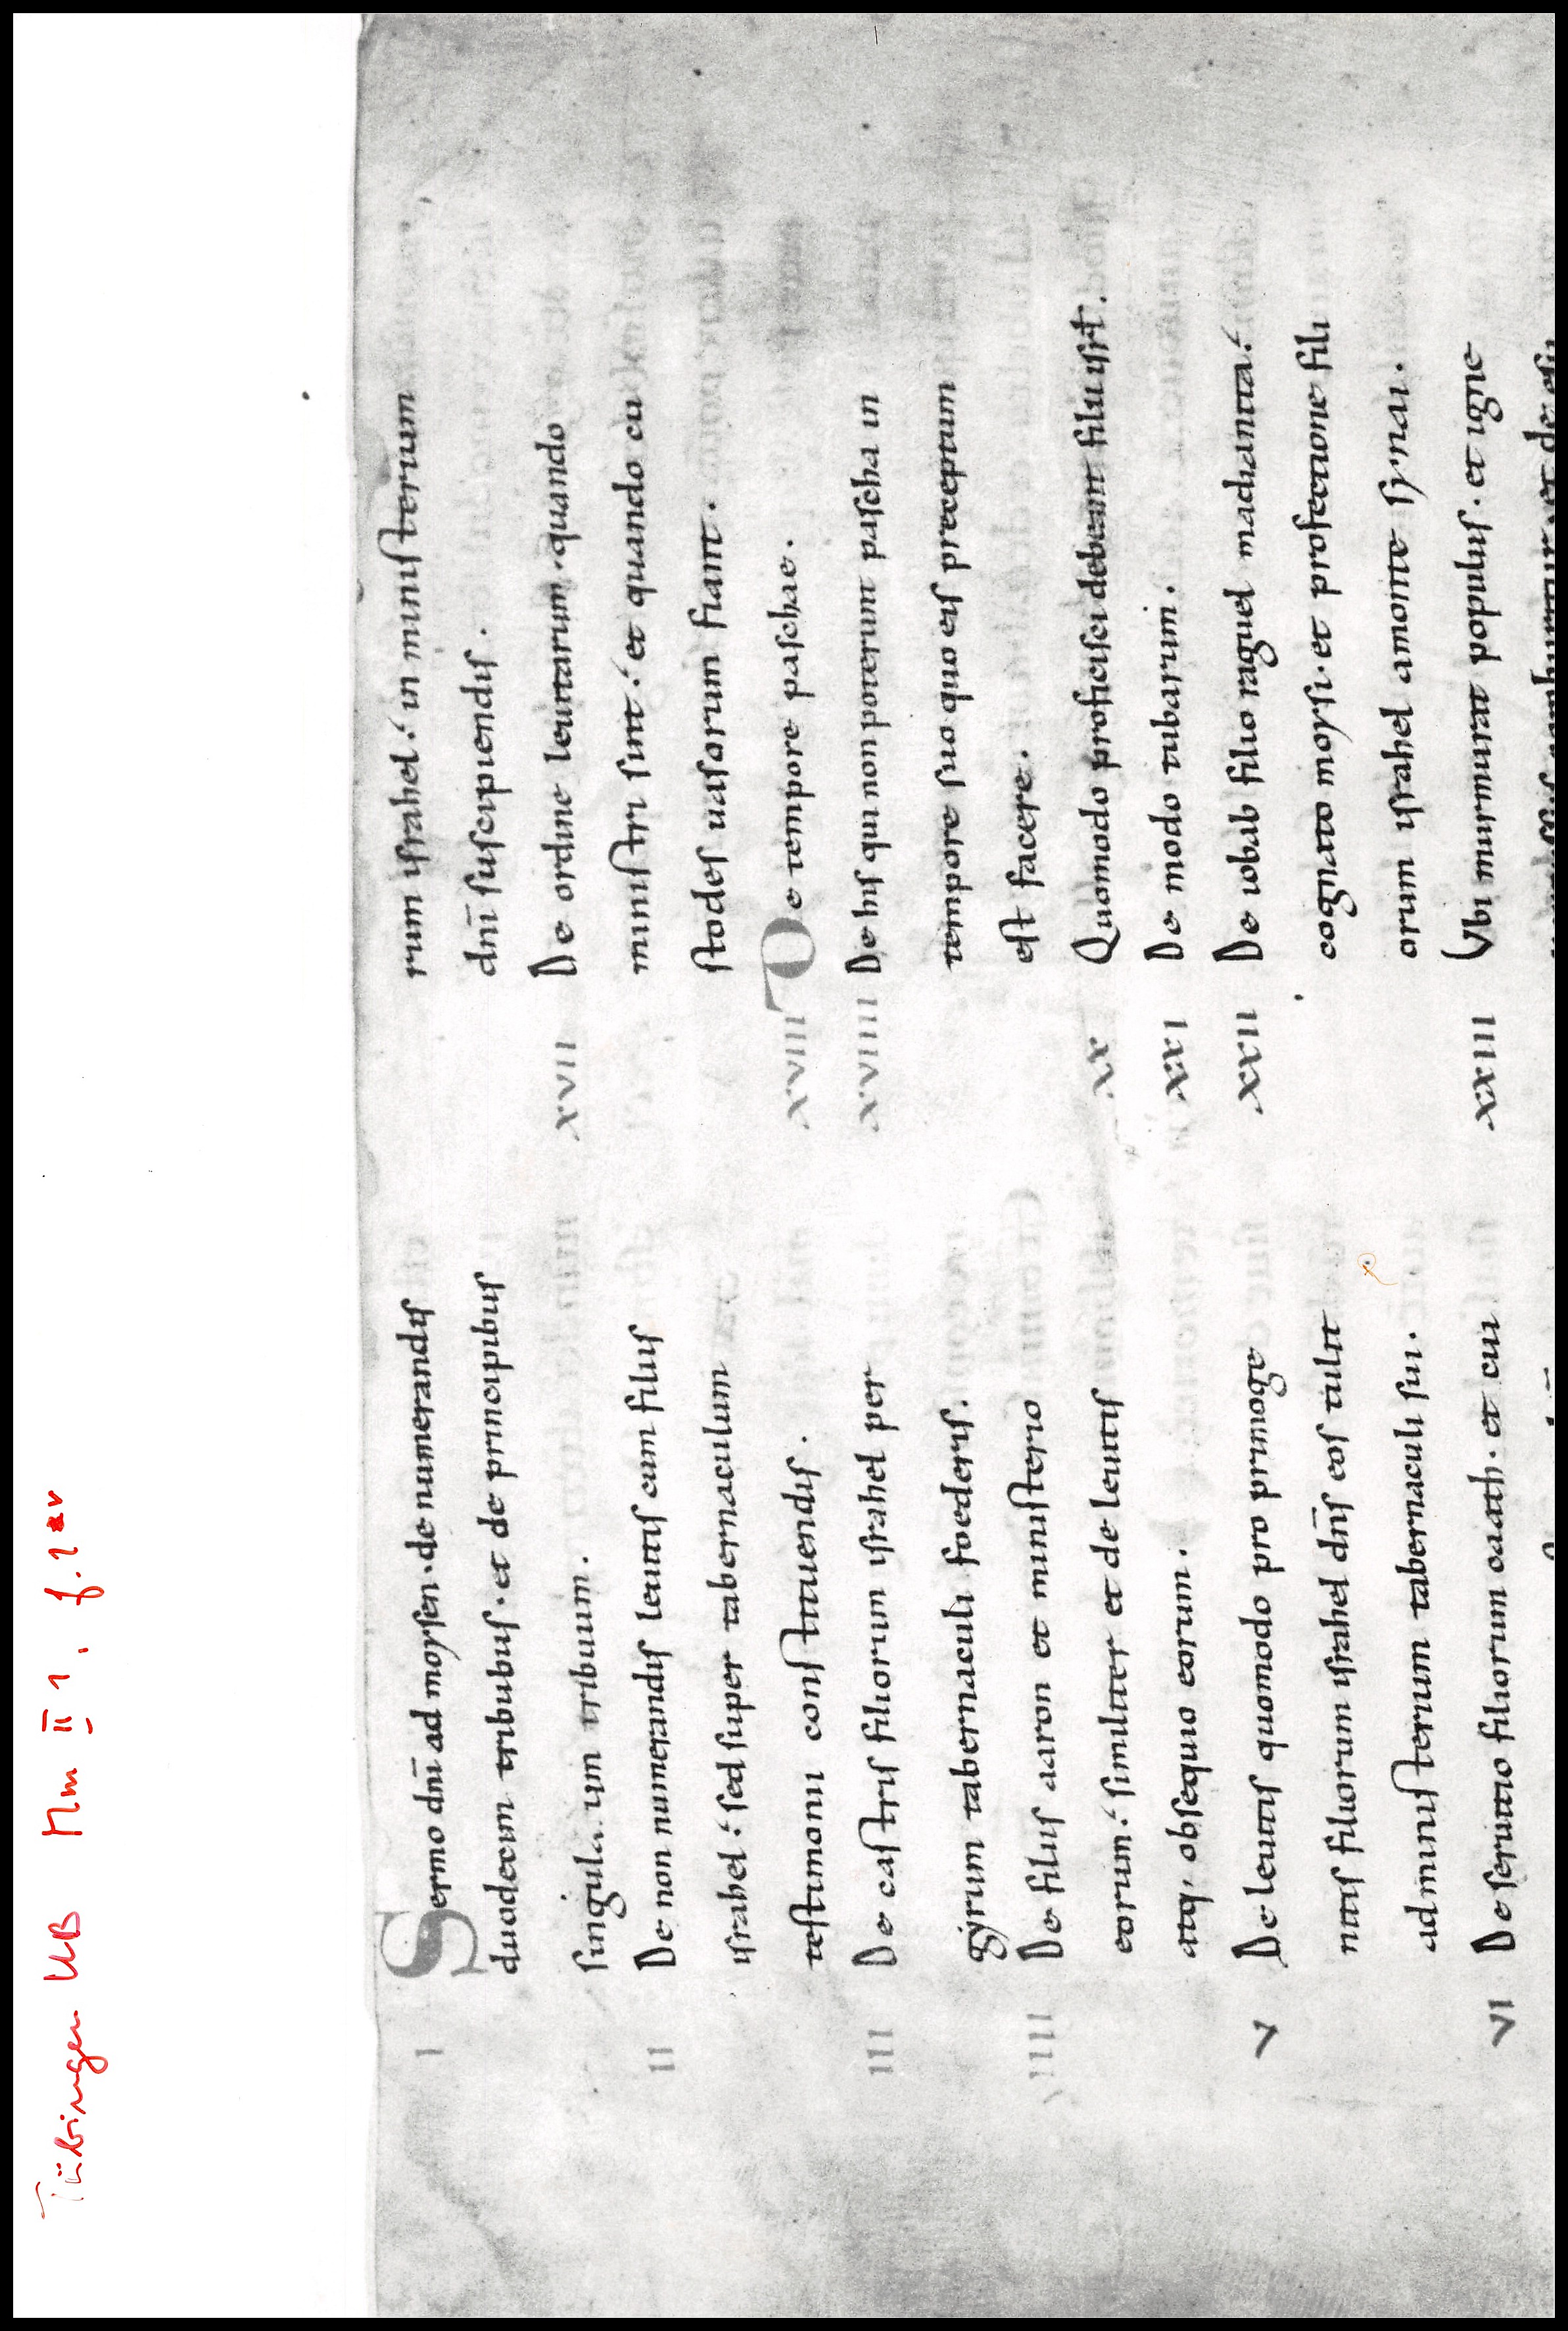 Tübingen UB Mm II 1, f. 1v
I Sermo dnī ad moysen · de numerandis
duodecim tribubus · et de principibus
tribuum .
II De non numerandis leuitis cum filiis
israhel .' sed super tabernaculum
testimonii constituendis .
III De castris filiorum israhel per
gyrum tabernaculi foederis .
IIII De filiis aaron et ministerio
eorum .' similiter et de leuitis
atq; obsequio eorum .
V De leuitis quomodo pro primoge
nitis filiorum israhel dnīs eos tulit
ad ministerium tabernaculi sui .
VI De seruitio filiorum caath · et cui
rum israhel .' in ministerium
dnī suscipiendis .
XVII De ordine leuitarum · quando
ministri sint .' et quando cu
stodes uasorum fiant .
XVIII De tempore paschae .
XVIIII De his qui non poterunt pascha in
tempore suo quo eis preceptum
est facere .
XX Quomodo proficisci debeant filii isrł .
XXI De modo tubarum .
XXII De iobab filio raguel madianita .'
cognato moysi · et profectione fili
orum israhel a monte synai .
XXIII Vbi murmurat populus · et igne